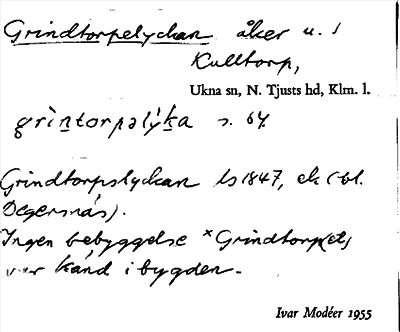 Grindtorpelyckan åker u. 1
Kulltorp,
Ukna sn, N. Tjusts hd, Klm. l.
grìntorpəlýka s. 64
Grindtorpslyckan LS 1847, ek (bl.
Degersnäs).
Ingen bebyggelse ˣGrindtorp(et)
var känd i bygden.
Ivar Modéer 1955